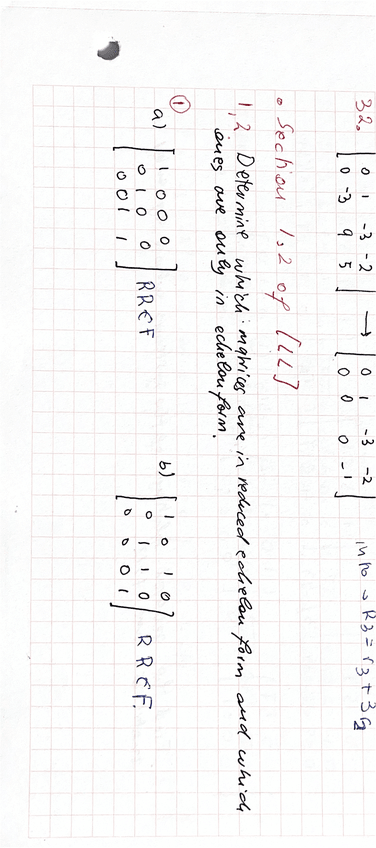 32. [ 0 1 -3 -2 ] → [ 0 1 -3 -2 ]
[ 0 -3 9 5 ] [ 0 0 0 -1 ] R3 = r3 + 3r2
• Section 1,2 of [LL]
1,2 Determine which matrices are in reduced echelon form and which
ones are only in echelon form.
①
a) [ 1 0 0 0 ] b) [ 1 0 1 0 ]
[ 0 1 0 0 ] RREF [ 0 1 1 0 ] RREF.
[ 0 0 1 1 ] [ 0 0 0 1 ]